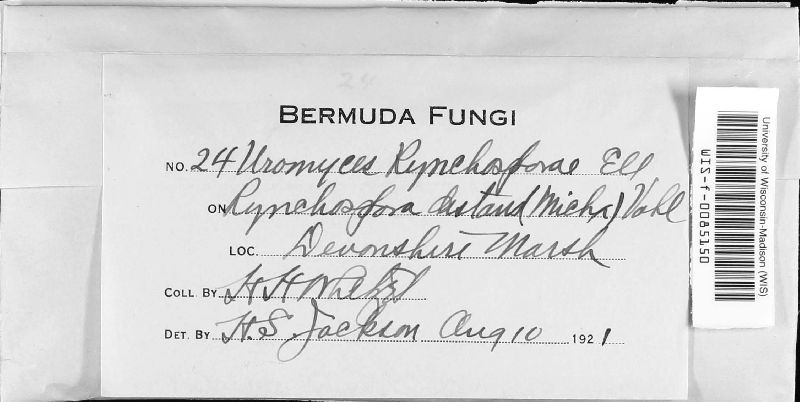 24
BERMUDA FUNGI
NO. 24 Uromyces Rynchosporae Ell
ON Rynchospora distans (Michx) Vahl
LOC. Devonshire Marsh
COLL. BY H H Whetzel
DET. BY H.S. Jackson Aug 10 1921
University of Wisconsin-Madison (WIS)
WIS-f-0085150